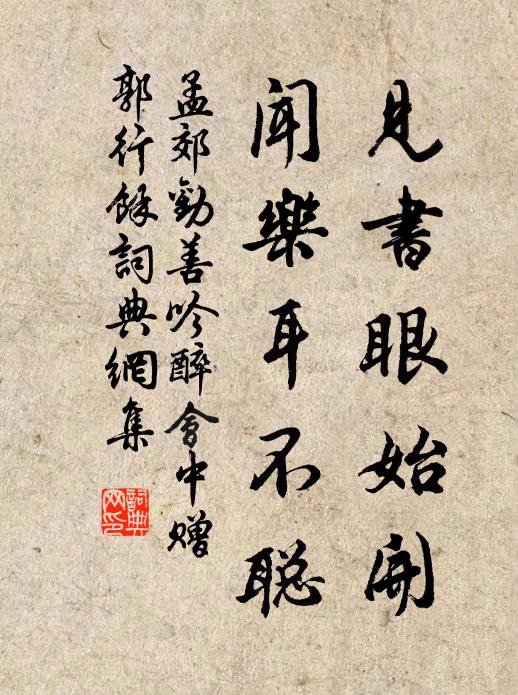 見書眼始開
聞樂耳不聰
孟郊勸善吟醉會中贈
郭行餘詞典網集
詞典
网印